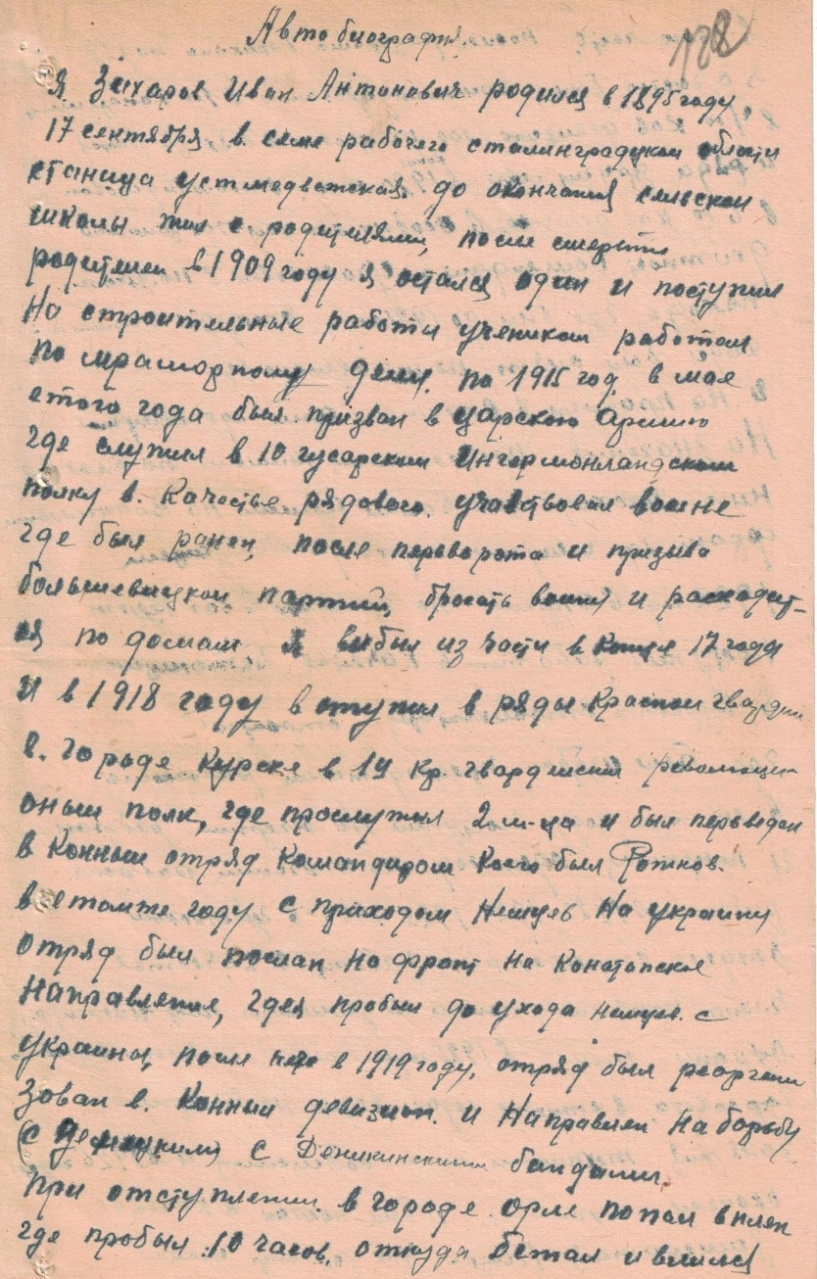 Автобиография.
138
Я Захаров Иван Антонович родился в 1895 году
17 сентября в семе рабочего сталинградском области
станица устмедветская до окончания сельскои
школы жил с родителями, после смерьти
родителеи в 1909 году я остался один и поступил
На строительные работы учеником работал
по мраморному делу. по 1915 год, в мае
етого года был призван в царскою Армию
где служил в 10 гусарском Ингермонландском
полку в. Качестве рядового. участвовал воине
где был ранен, после переворота и призыва
большевицкои партии, бросать воину и расходит-
ся по домам я выбыл из части в конце 17 года
И в 1918 году вступил в ряды Краснои гвардии
в. городе Курске в 14 Кр. гвардиский революци-
оныи полк, где прослужил 2 м-ца и был переведен
в Конныи отряд Командиром Коего был
в етомже году с приходом Немцев На украину
отряд был послан На фронт На Конотопское
Направление, где я пробыл до ухода немцев. с
украины, после чего в 1919 году, отряд был реоргани
зован в. Конныи девизион. и Направлен На борьбу
с Деникинскими бандами.
При отступлении. в городе орле попал в плен
где пробыл 10 часов, откуда бежал и влился